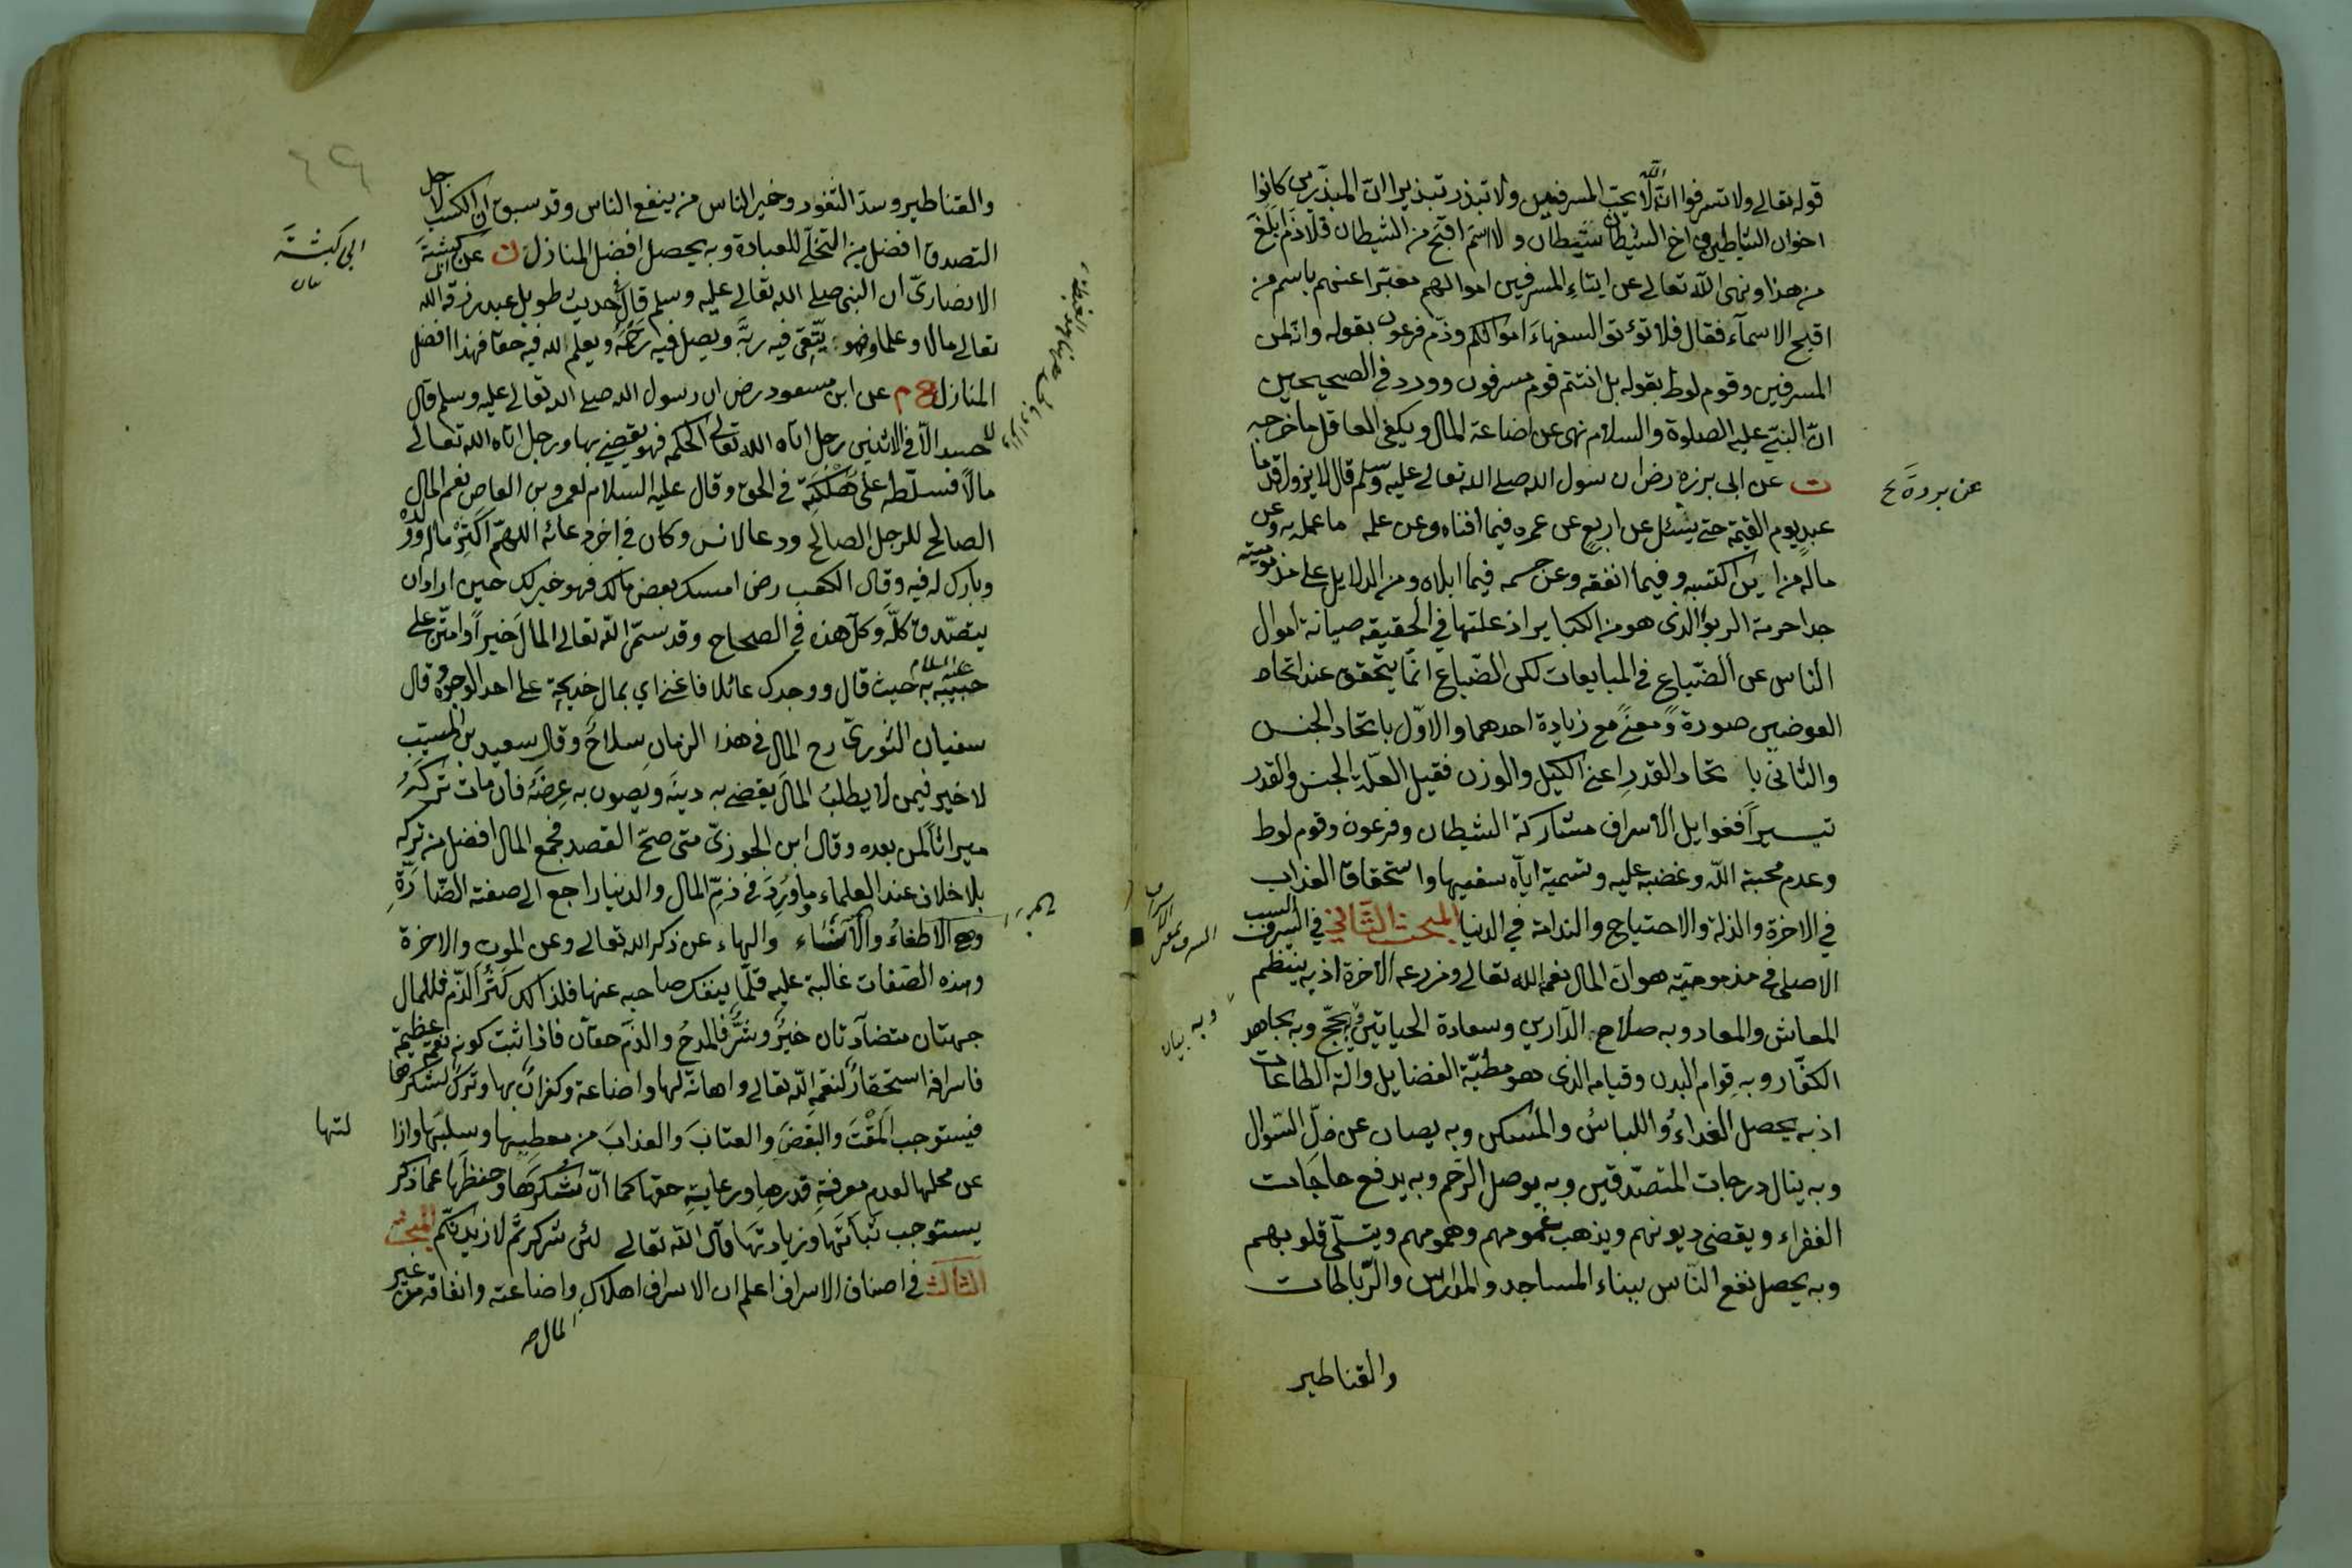 قوله تعالى ولا تسرفوا انه لا يحب المسرفين ولا تبذر تبذيرا ان المبذرين كانوا
اخوان الشياطين واخ الشيطان شيطان ولا اسم اقبح من الشيطان فلا ذم ابلغ
من هذا ونهى الله تعالى عن ايتاء المسرفين اموالهم معبرا عنهم باسم من
اقبح الاسماء فقال فلا تؤتوا السفهاء اموالكم وذم فرعون بقوله وانه لمن
المسرفين وقوم لوط بقوله بل انتم قوم مسرفون وورد في الصحيحين
ان النبي عليه الصلوة والسلام نهى عن اضاعة المال ويكفي العاقل ما خرجه
ت عن ابى برزة رض ان رسول الله صلى الله تعالى عليه وسلم قال لا يزول قدما
عبد يوم القيمة حتى يسئل عن اربع عن عمره فيما افناه وعن علمه ما عمل به وعن
ماله من اين اكتسبه وفيما انفقه وعن جسمه فيما ابلاه ومن الدلايل على مذموميته
جدا حرمة الربوا الذى هو من الكبائر اذ علتها في الحقيقة صيانة اموال
الناس عن الضياع في المبايعات لكن الضياع انما يتحقق عند اتحاد
العوضين صورة ومعنى مع زيادة احدهما والاول باتحاد الجنس
والثاني با تحاد القدر اعنى الكيل والوزن فقيل العلة الجنس والقدر
تيسيرا فغوايل الاسراف مشاركة الشيطان وفرعون وقوم لوط
وعدم محبة الله وغضبه عليه وتسمية اياه سفيها واستحقاق العذاب
في الاخرة والذلة والاحتياج والندامة في الدنيا المبحث الثاني في السبب
الاصلي في مذموميته هو ان المال نعمة الله تعالى ومزرعة الاخرة اذ به ينتظم
المعاش والمعاد وبه صلاح الدارين وسعادة الحياتين وبه يحج وبه يجاهد
الكفار وبه قوام البدن وقيامه الذى هو مطية الفضايل والة الطاعات
اذ به يحصل الغداء واللباس والمسكن وبه يصان عن ذل السؤال
وبه ينال درجات المتصدقين وبه يوصل الرحم وبه يدفع حاجات
الفقراء ويقضى ديونهم ويذهب غمومهم وهمومهم ويتسلى قلوبهم
وبه يحصل نفع الناس ببناء المساجد والمدارس والرباطات
والقناطير
عن بردة
والقناطير وسد الثغور وخير الناس من ينفع الناس وقد سبق ان الكسب لاجل
التصدق افضل من التخلى للعبادة وبه يحصل افضل المنازل ت عن ابى كبشة
الانصارى ان النبى صلى الله تعالى عليه وسلم قال في حديث طويل عبد رزقه الله
تعالى مالا وعلما فهو يتقى فيه ربه ويصل فيه رحمه ويعلم لله فيه حقا فهذا افضل
المنازل خ م عن ابن مسعود رض ان رسول الله صلى الله تعالى عليه وسلم قال
لا حسد الا في الاثنين رجل اتاه الله تعالى الحكمة فهو يقضى بها ورجل اتاه الله تعالى
مالا فسلطه على هلكته في الحق وقال عليه السلام لعمرو بن العاص نعم المال
الصالح للرجل الصالح ودعا لانس وكان في اخر دعائه اللهم اكثر ماله وولده
وبارك له فيه وقال الكعب رض امسك بعض مالك فهو خير لك حين اراد ان
يتصدق كله وكل هذه في الصحاح وقد سمى الله تعالى المال خيرا وامتن على
حبيبه عليه السلام به حيث قال ووجدك عائلا فاغنى اي بمال خديجة على احد الوجوه وقال
سفيان الثورى رح المال في هذا الزمان سلاح وقال سعيد بن المسيب
لا خير فيمن لا يطلب المال يقضى به دينه ويصون به عرضه فان مات تركه
ميراثا لمن بعده وقال ابن الجوزى متى صح القصد فجمع المال افضل من تركه
بلا خلاف عند العلماء وما ورد في ذم المال والدنيا راجع الى صفته الضارة
وهى الاطغاء والانساء والهاء عن ذكر الله تعالى وعن الموت والاخرة
وهذه الصفات غالبة عليه قلما ينفك صاحبه عنها فلذلك كثر الذم فللمال
جهتان متضادتان خير وشر فالمدح والذم حقان فاذا ثبت كونه نعمة عظيمة
فاسرافه استحقار لنعمة الله تعالى واهانة لها واضاعة وكفران بها وترك لشكرها
فيستوجب المقت والبغض والعتاب والعذاب من معطيها وسلبها وازا
عن محلها لعدم معرفة قدرها ورعاية حقها كما ان شكرها وحفظها عما ذكر
يستوجب ثباتها وزيادتها قال الله تعالى لئن شكرتم لازيدنكم المبحث
الثالث في اصناف الاسراف اعلم ان الاسراف اهلاك واضاعته وانفاقه من غير
المال صح
ابى كبشة
لتها